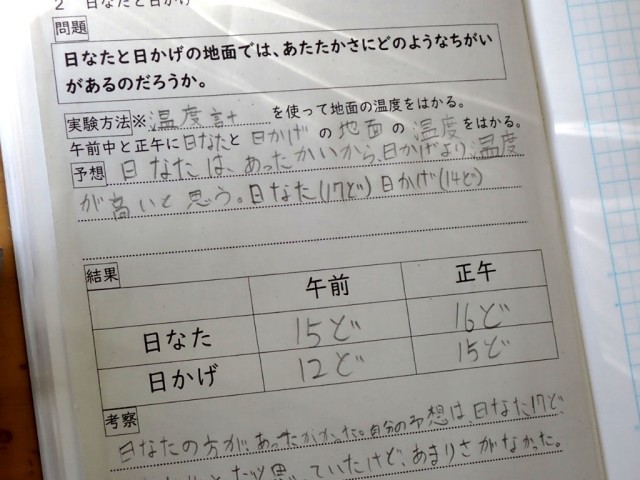 2 日なたと日かげ
問題
日なたと日かげの地面では、あたたかさにどのようなちがい
があるのだろうか。
実験方法※温度計を使って地面の温度をはかる。
午前中と正午に日なたと日かげの地面の温度をはかる。
予想 日なたは、あったかいから、日かげより、温度
が高いと思う。日なた(17ど)日かげ(14ど)
結果
午前 正午
日なた 15ど 16ど
日かげ 12ど 15ど
考察
日なたの方が、あったかかった。自分の予想は、日なた17ど、
思っていたけど、あまりさがなかった。